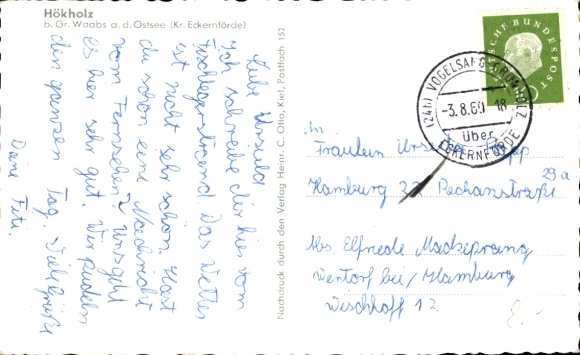 Hökholz
b. Gr. Waabs a. d. Ostsee (Kr. Eckernförde)
Liebe Ursula
Ich schreibe dir hier vom
Das Wetter
ist nicht sehr schön. Hast
du schon eine Nachricht
vom Fernsehen? Uns geht
es hier sehr gut. Wir pudeln
den ganzen Tag. Viele Grüße
Deine Fiti.
Nachdruck durch den Verlag Heinr. C. Otto, Kiel, Postfach 152
DEUTSCHE BUNDESPOST
(24b) VOGELSANG-GRÜNHOLZ
-3.8.60-18
über
ECKERNFÖRDE
An
Fräulein
Hamburg
29a
Abs. Elfriede Madseprang
Wentorf bei/Hamburg
Wischhoff 12